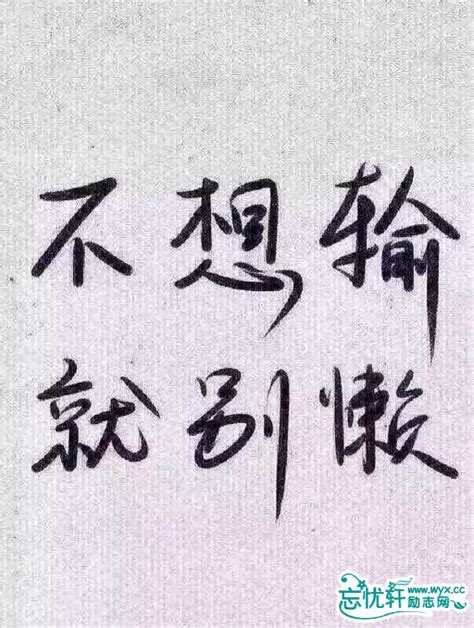 不想输
就别懒
忘忧轩励志网
www.wyx.cc